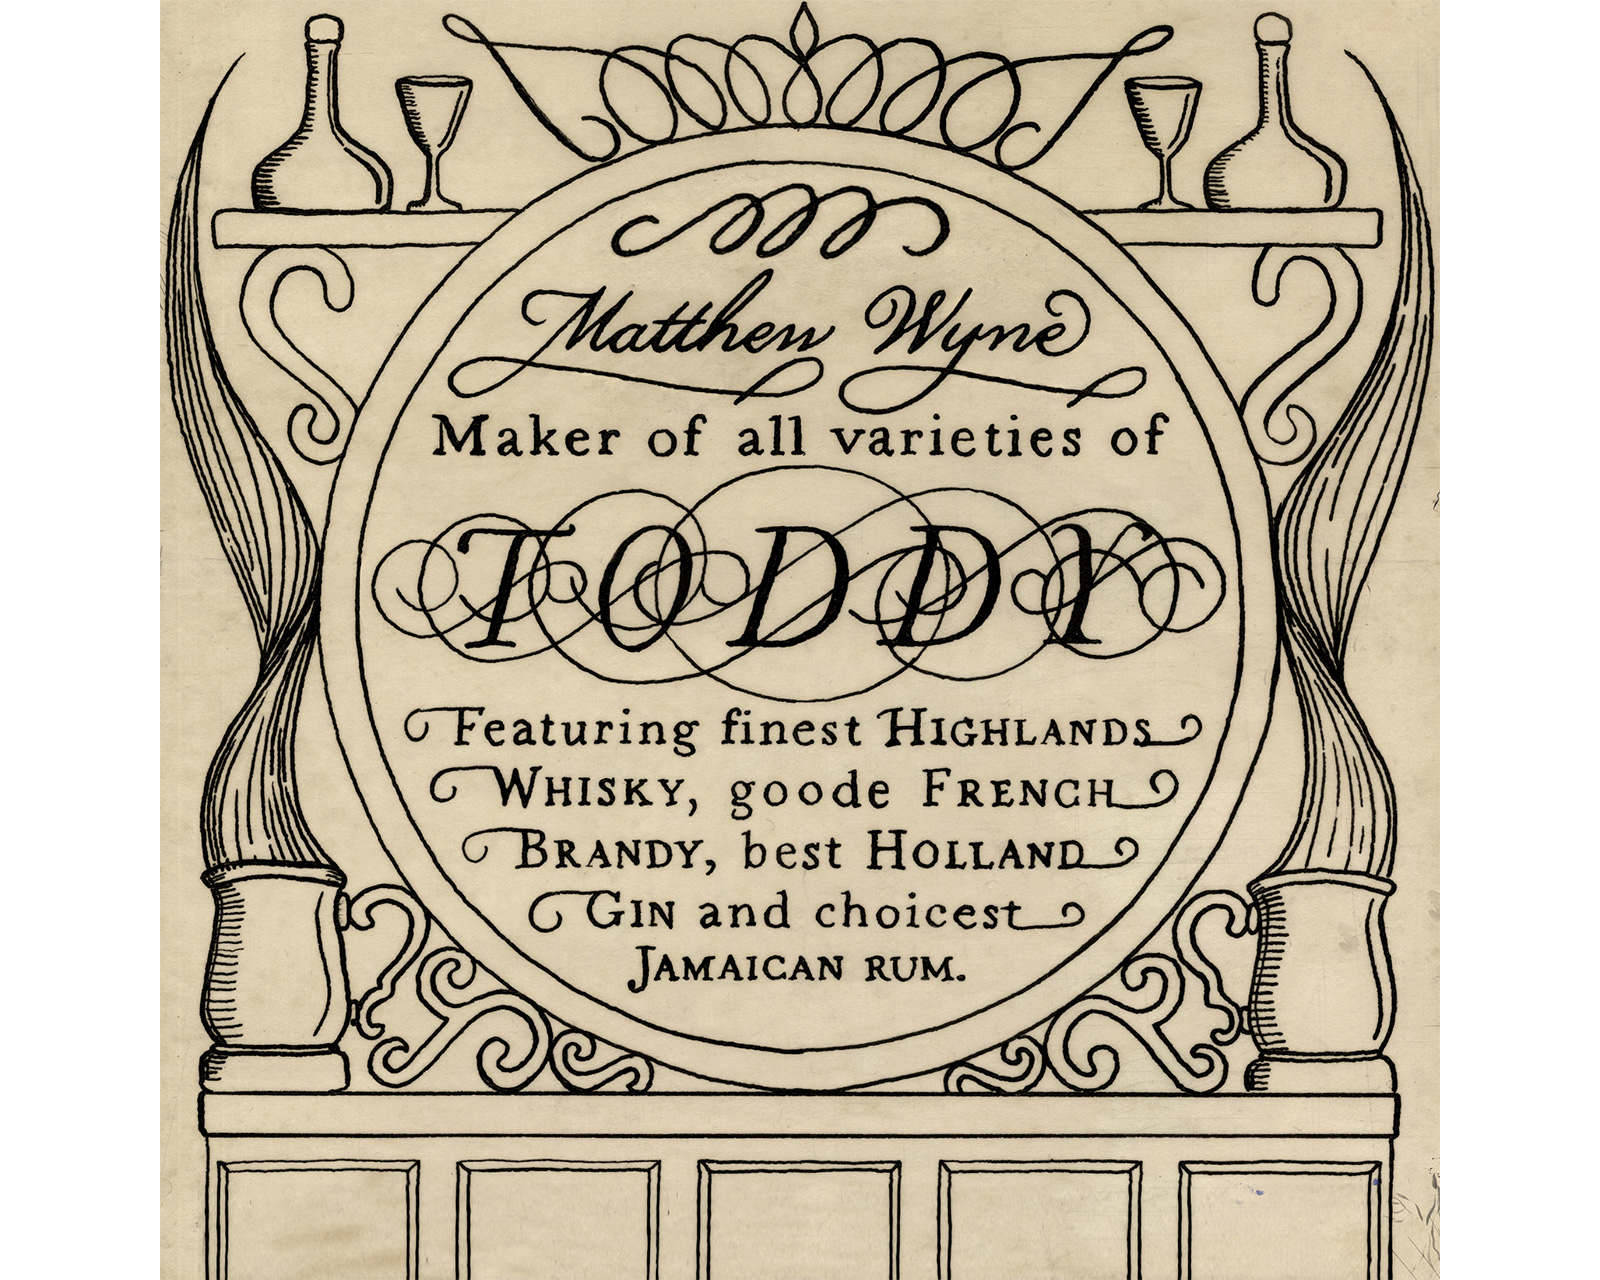 Matthew Wyne
Maker of all varieties of
TODDY
Featuring finest HIGHLANDS
WHISKY, goode FRENCH
BRANDY, best HOLLAND
GIN and choicest
JAMAICAN RUM.